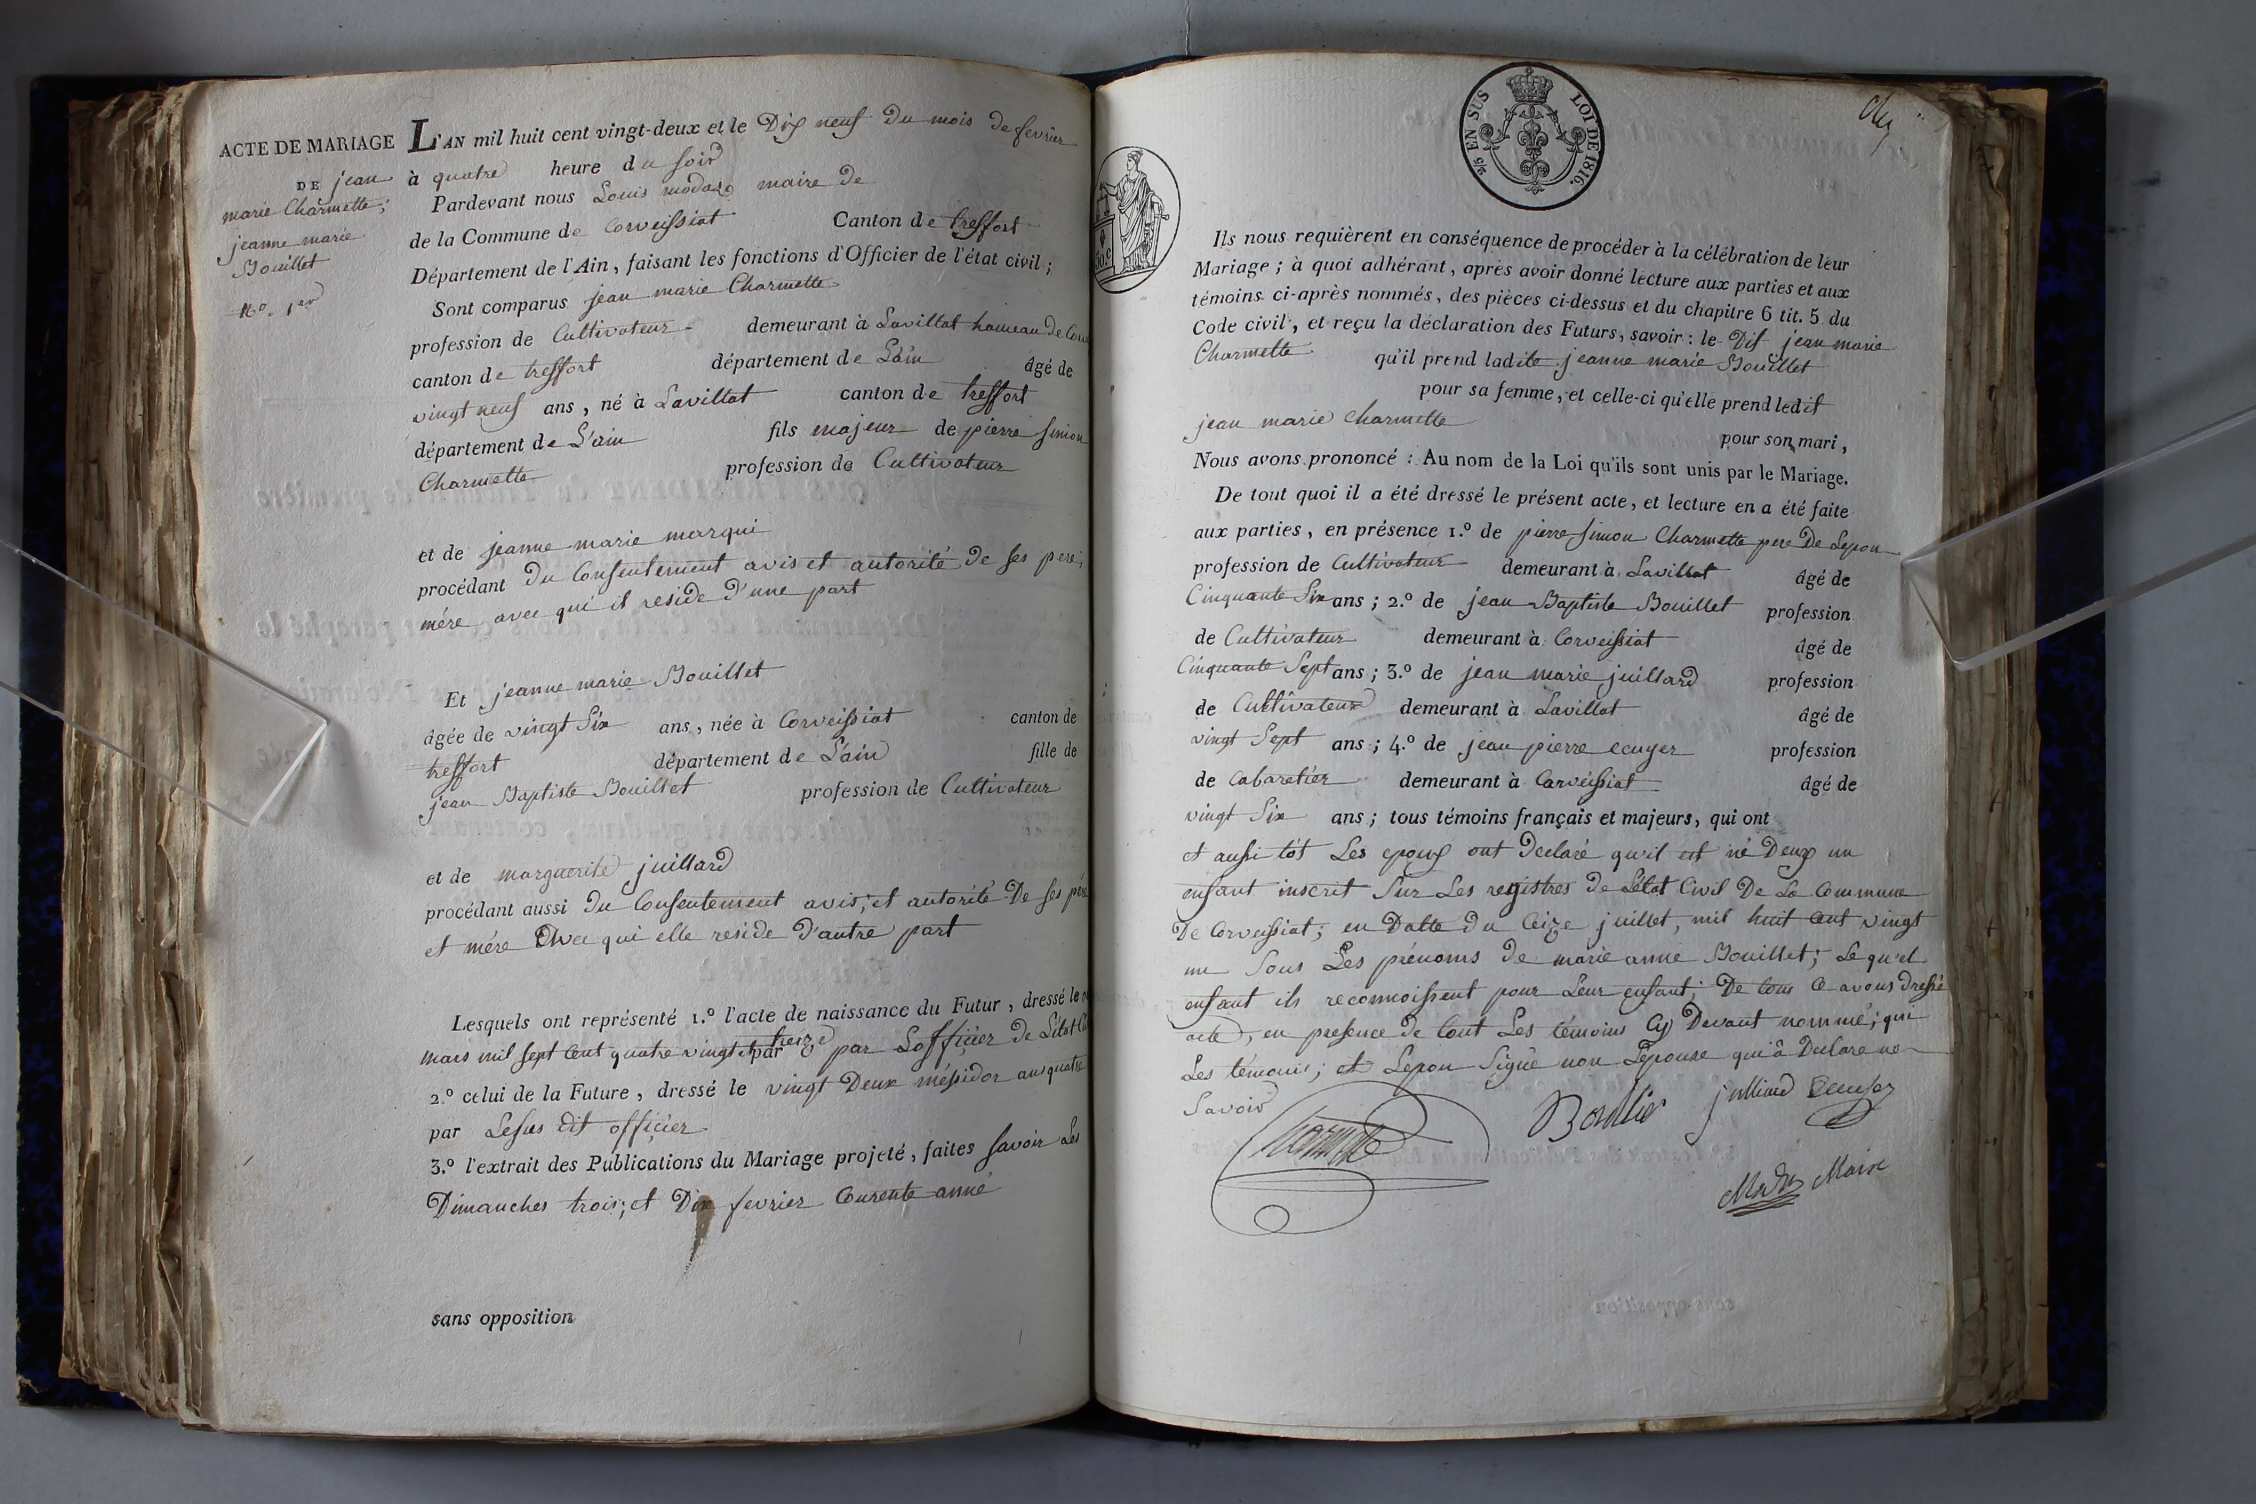 ACTE DE MARIAGE
DE jean
marie Charmette;
jeanne marie
Bouillet
No. 1er
L'AN mil huit cent vingt-deux et le Dix neuf Du mois de fevrier
à quatre heure du soir
Pardevant nous Louis modas maire de
de la Commune de Corveissiat Canton de treffort
Département de l'Ain, faisant les fonctions d'Officier de l'état civil;
Sont comparus jean marie Charmette
profession de Cultivateur demeurant à Lavillat hameau de
canton de treffort département de L'ain âgé de
vingt neuf ans, né à Lavillat canton de treffort
département de L'ain fils majeur de pierre simon
Charmette profession de Cultivateur
et de jeanne marie marqui
procédant Du Consentement avis et autorité De ses pere;
mére avec qui il reside d'une part
Et jeanne marie Bouillet
âgée de vingt Six ans, née à Corveissiat canton de
treffort département de L'ain fille de
jean Baptiste Bouillet profession de Cultivateur
et de marguerite juillard
procédant aussi Du Consentement avis; et autorité De ses pére
et mére avec qui elle reside d'autre part
Lesquels ont représenté 1.º l'acte de naissance du Futur, dressé le
mars mil sept Cent quatre vingt treize par par L'officier de L'état
2.º celui de la Future, dressé le vingt Deux méssidor an quatre
par Lesus dit officier
3.º l'extrait des Publications du Mariage projeté, faites savoir Les
Dimanches trois; et Dix fevrier Courente anné
sans opposition
2/5 EN SUS
LOI DE 1816.
50.c
Ils nous requièrent en conséquence de procéder à la célébration de leur
Mariage; à quoi adhérant, après avoir donné lecture aux parties et aux
témoins ci-après nommés, des pièces ci-dessus et du chapitre 6 tit. 5 du
Code civil, et reçu la déclaration des Futurs, savoir: le Dit jean marie
Charmette qu'il prend ladite jeanne marie Bouillet
pour sa femme, et celle-ci qu'elle prend ledit
jean marie charmette
pour son mari,
Nous avons prononcé: Au nom de la Loi qu'ils sont unis par le Mariage.
De tout quoi il a été dressé le présent acte, et lecture en a été faite
aux parties, en présence 1.º de pierre simon Charmette pere De Lepou
profession de Cultivateur demeurant à Lavillat âgé de
Cinquante Six ans; 2.º de jean Baptiste Bouillet profession
de Cultivateur demeurant à Corveissiat âgé de
Cinquante Sept ans; 3.º de jean marie juillard profession
de Cultivateur demeurant à Lavillat âgé de
vingt Sept ans; 4.º de jean pierre ecuyer profession
de cabaretier demeurant à Corveissiat âgé de
vingt Six ans; tous témoins français et majeurs, qui ont
et aussi tôt Les epoux ont Declaré qu'il est né Deux un
enfant inscrit Sur Les registres de L'état Civil De La Commune
De Corveissiat; en Datte Du Ceize juillet, mil huit cent vingt
un Sous Les prénoms de marie anne Bouillet; Le qu'el
enfant ils reconnoissent pour Leur enfant; De tous Ce avons Dressé
acte, en presence de tout Les témoins Cy Devant nommé; qui
Les témoins; et Lepou Signé non L'epouse qui â Declare ne
Savoir
Charmette
juilliard
Maire